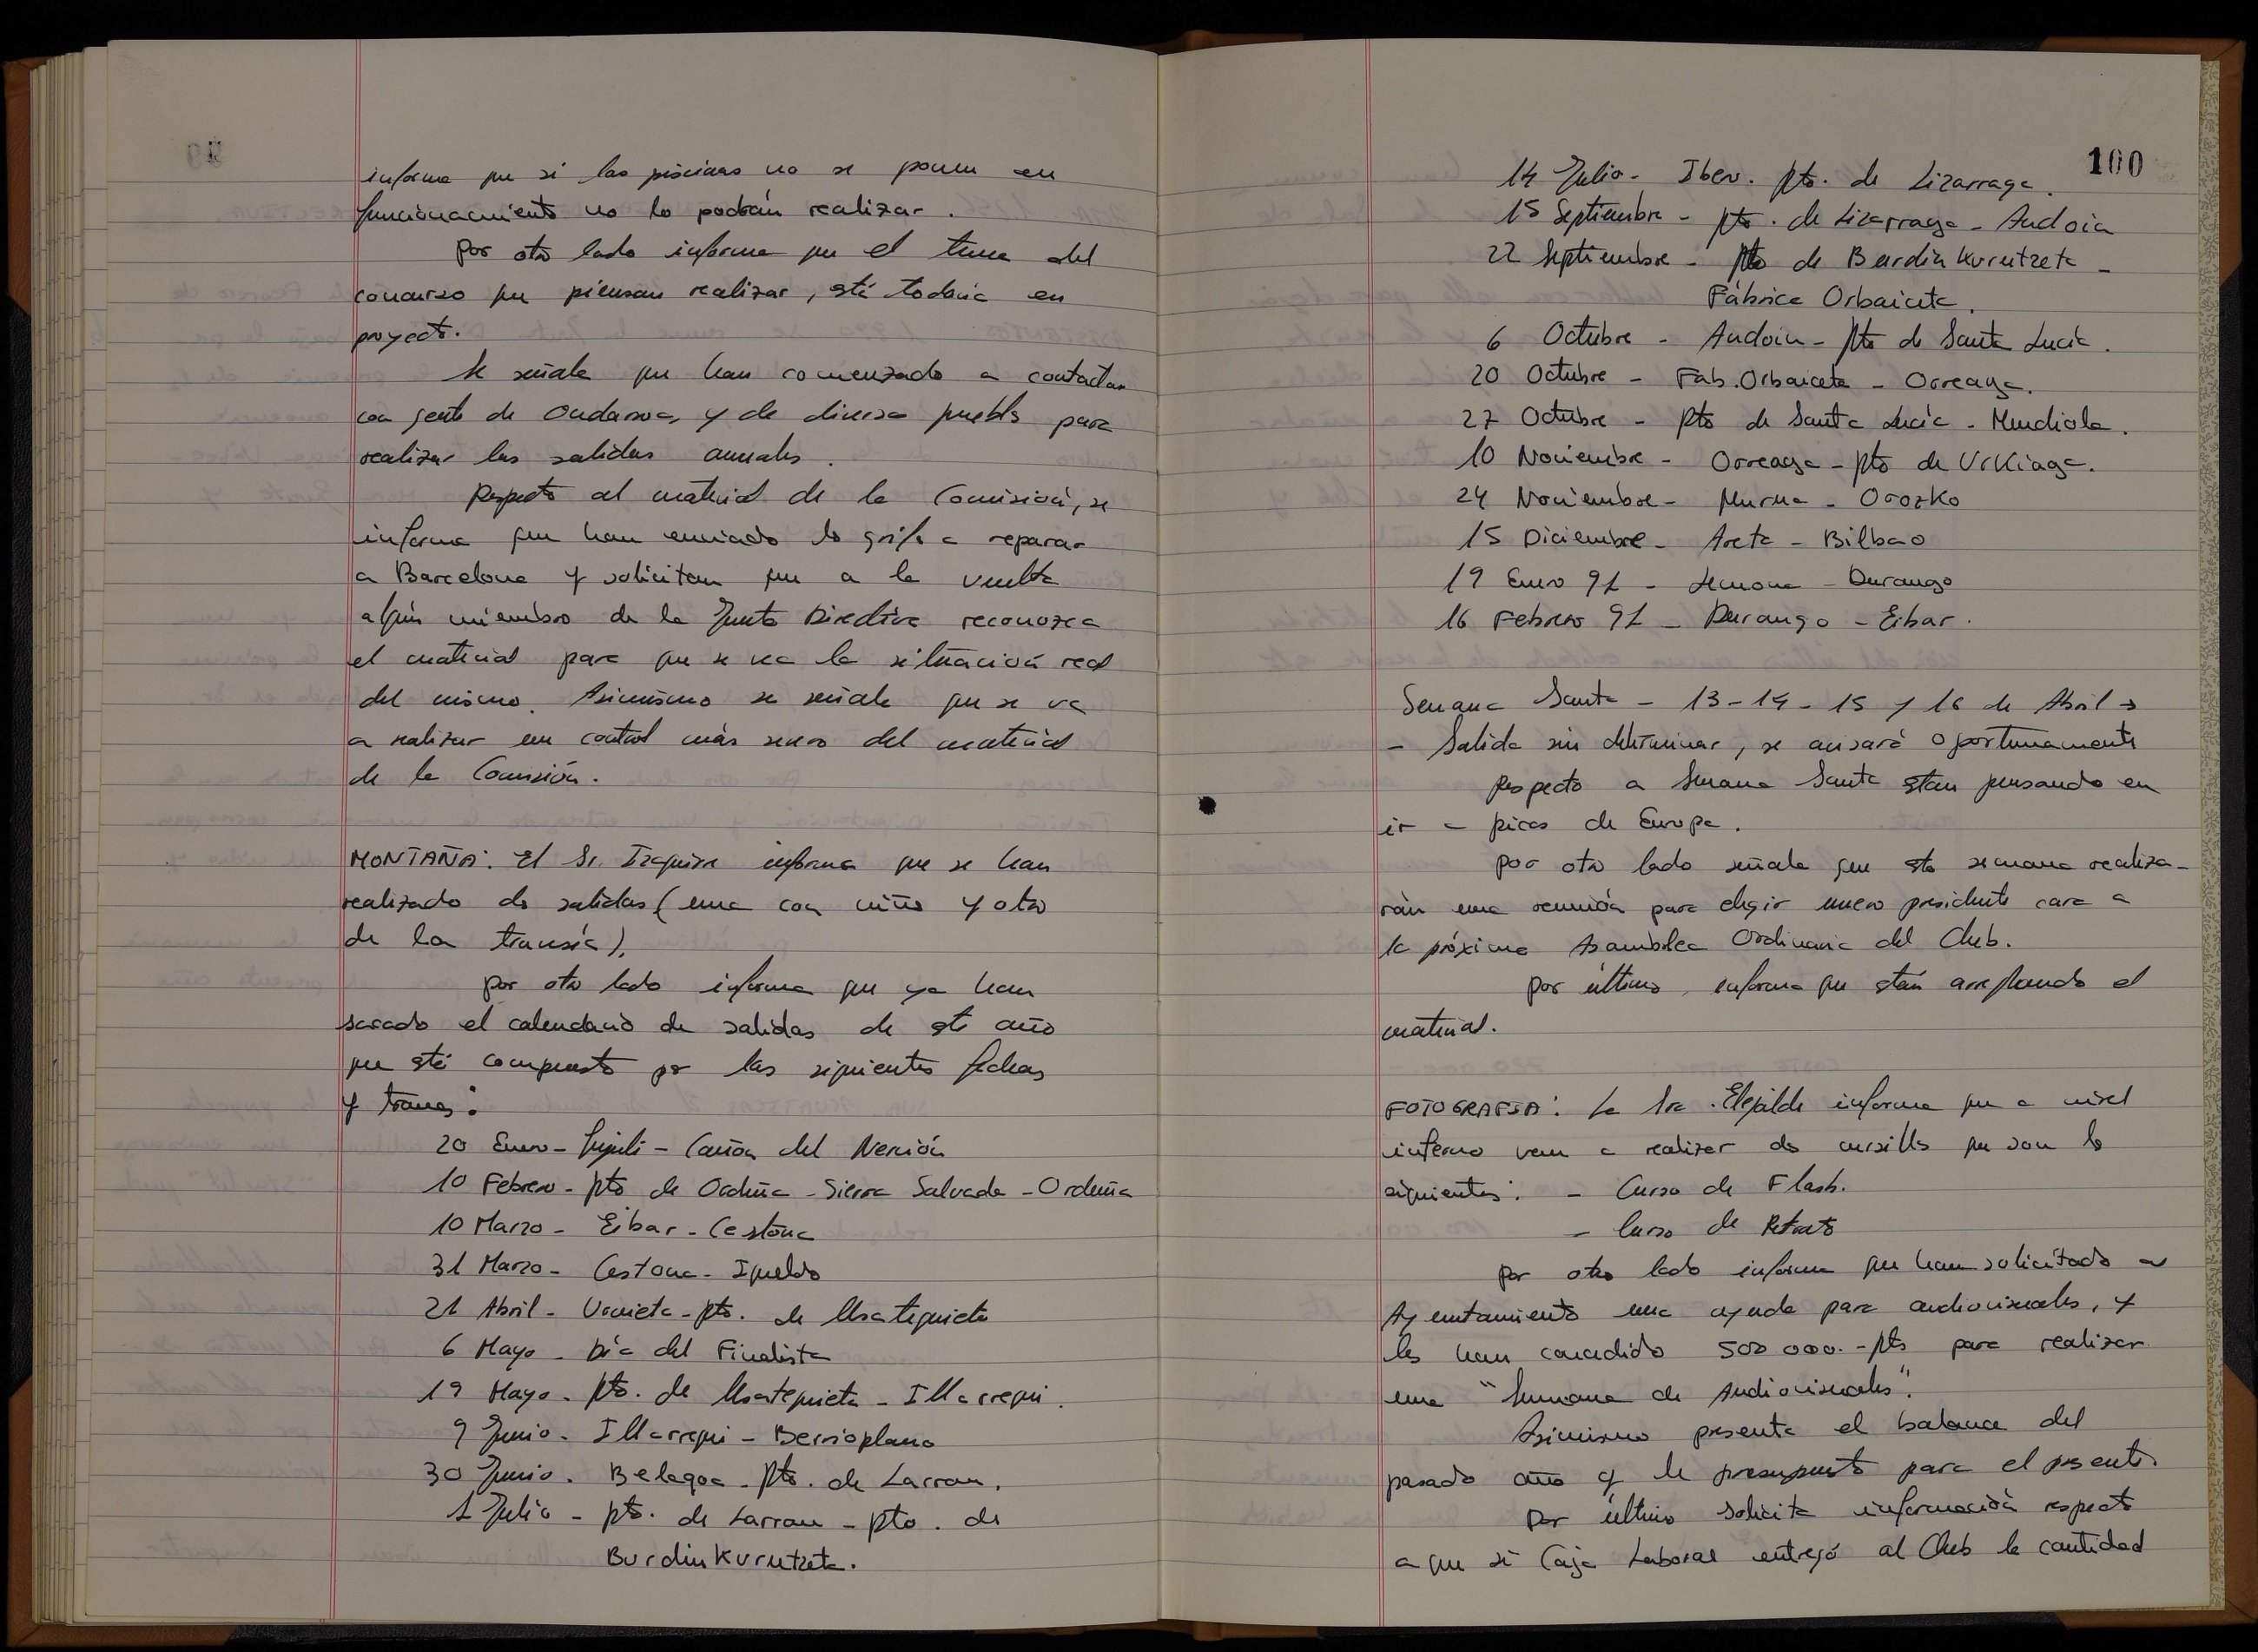 informa que si las piscinas no se ponen en
funcionamiento no lo podrán realizar.
Por otro lado informa que el tema del
concurso que piensan realizar, está todavía en
proyecto.
Se señala que han comenzado a contactar
con gente de Ondarroa, y de diversos pueblos para
realizar las salidas anuales.
Respecto al material de la Comisión, se
informa que han enviado los grifos a reparar
a Barcelona y solicitan que a la vuelta
algún miembro de la Junta Directiva reconozca
el material para que se vea la situación real
del mismo. Asimismo se señala que se va
a realizar un control más severo del material
de la Comisión.
MONTAÑA: El Sr. Izaguirre informa que se han
realizado dos salidas (una con niños y otra
de la travesía).
Por otro lado informa que ya han
sacado el calendario de salidas de este año
que está compuesto por las siguientes fechas
y tramos:
20 Enero - Gujuli - Cañón del Nervión
10 Febrero - Pto de Orduña - Sierra Salvada - Orduña
10 Marzo - Eibar - Cestona
31 Marzo - Cestona - Igueldo
21 Abril - Urnieta - Pto. de Usategieta
6 Mayo - Día del Finalista
19 Mayo - Pto. de Usategieta - Illarregui.
9 Junio - Illarregui - Berrioplano
30 Junio. Belagoa - Pto. de Larrau.
1 Julio - Pto. de Larrau - Pto. de
Burdinkurutzeta.
100
14 Julio - Ibero. Pto. de Lizarraga.
15 Septiembre - Pto. de Lizarraga - Andoin
22 Septiembre - Pto de Burdinkurutzeta -
Fábrica Orbaiceta.
6 Octubre - Andoin - Pto de Santa Lucía.
20 Octubre - Fab. Orbaiceta - Orreaga.
27 Octubre - Pto de Santa Lucía - Mendiola.
10 Noviembre - Orreaga - Pto de Urkiaga.
24 Noviembre - Murua - Orozko
15 Diciembre - Areta - Bilbao
19 Enero 91 - Lemona - Durango
16 Febrero 91 - Durango - Eibar.
Semana Santa - 13 - 14 - 15 y 16 de Abril →
- Salida sin determinar, se avisará oportunamente
Respecto a Semana Santa están pensando en
ir a picos de Europa.
Por otro lado señala que esta semana realiza-
rán una reunión para elegir nuevo presidente cara a
la próxima Asamblea Ordinaria del Club.
Por último, informa que están arreglando el
material.
FOTOGRAFIA: La Sra. Elejalde informa que a nivel
interno van a realizar dos cursillos que son los
siguientes: - Curso de Flash.
- Curso de Retrato
Por otro lado informa que han solicitado al
Ayuntamiento una ayuda para audiovisuales, y
les han concedido 500 000.- pts para realizar
una "Semana de Audiovisuales".
Asimismo presenta el balance del
pasado año y el presupuesto para el presente.
Por último solicita información respecto
a que si Caja Laboral entregó al Club la cantidad